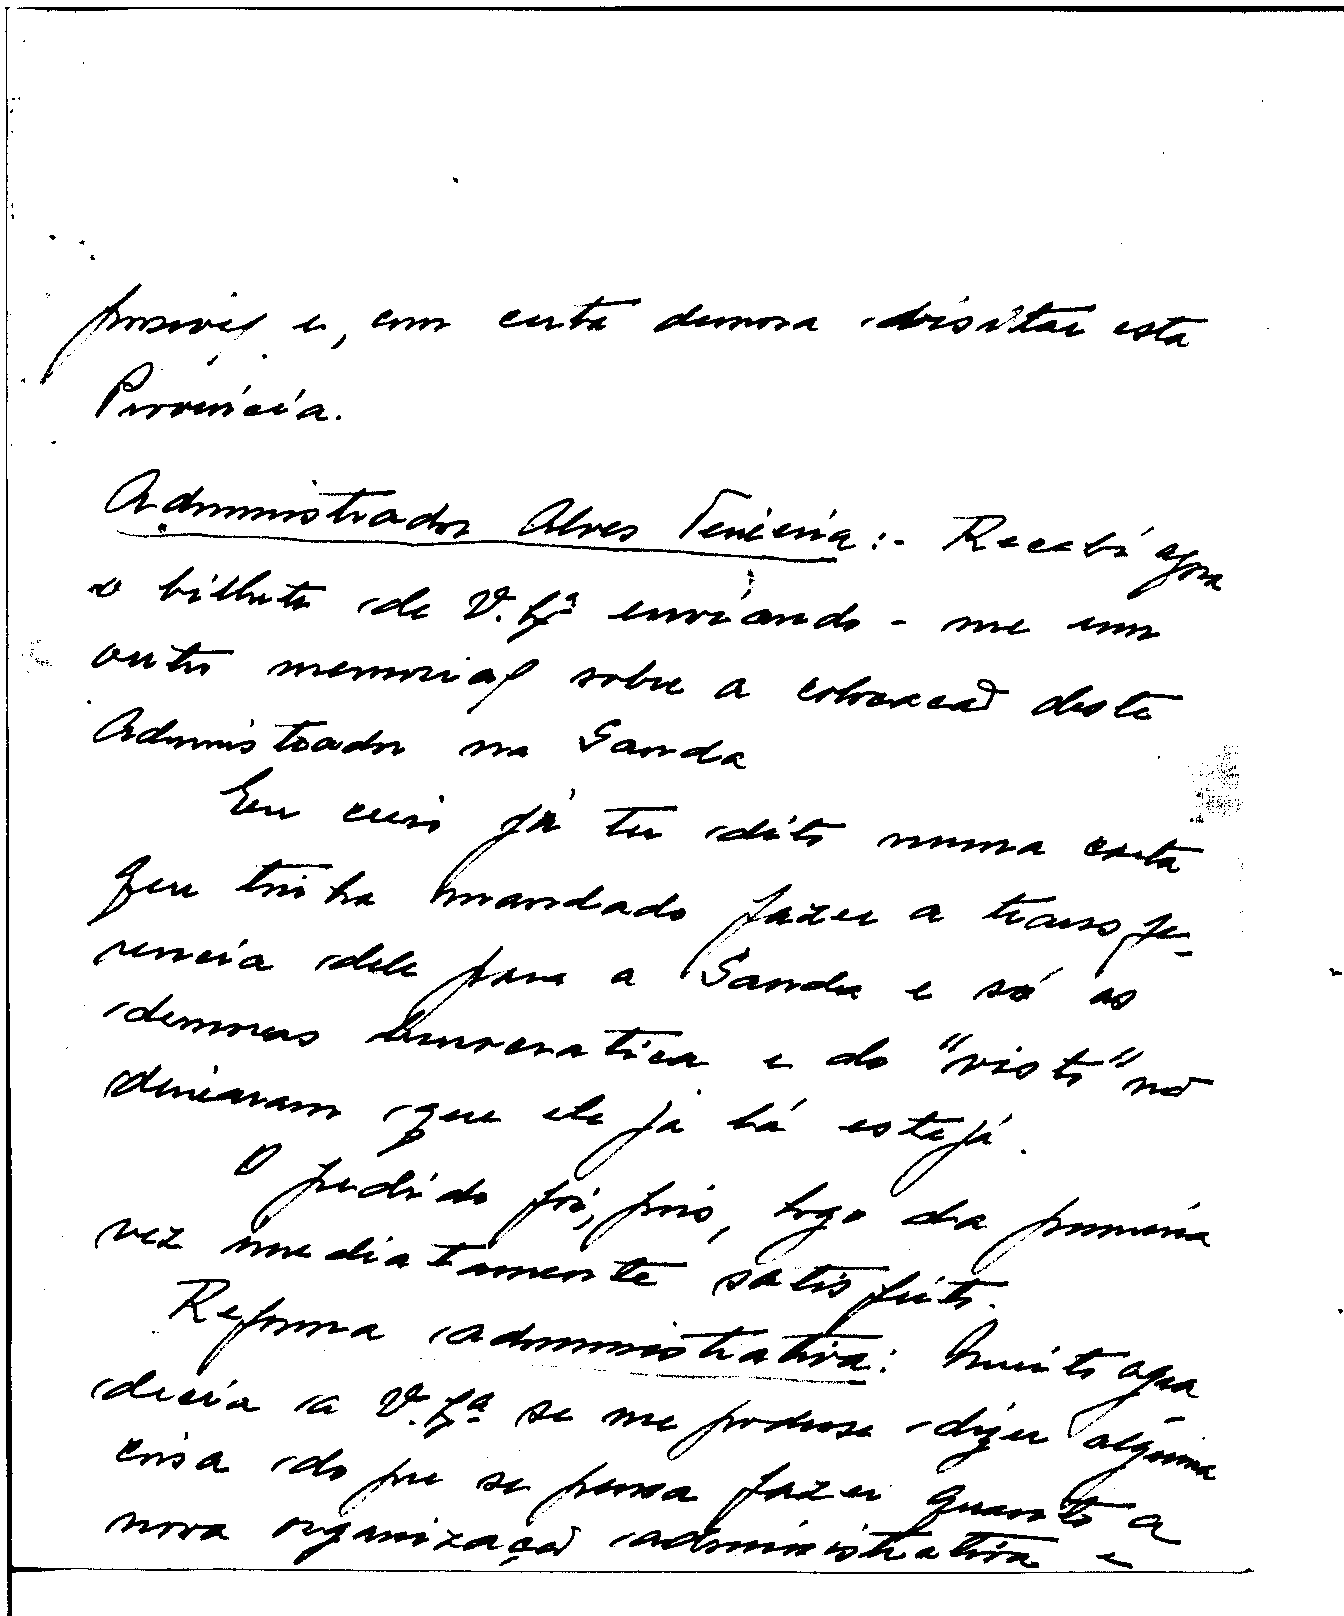 possivel e, com certa demora visitar esta
Provincia.
Administrador Alves Teixeira:- Recebi agora
o bilhete de V. Exª enviando-me um
outro memorial sobre a colocação deste
Administrador na Ganda
Eu creio já ter dito numa carta
que tinha mandado fazer a transfe-
rencia dele para a Ganda e só as
demoras burocratica e do "visto" não
deixaram que ele já lá esteja.
O pedido foi, pois, logo da primeira
vez imediatamente satisfeito.
Reforma administrativa: Muito agra
decia a V. Exª se me podesse dizer alguma
coisa do que se pensa fazer quanto a
nova organização administrativa e